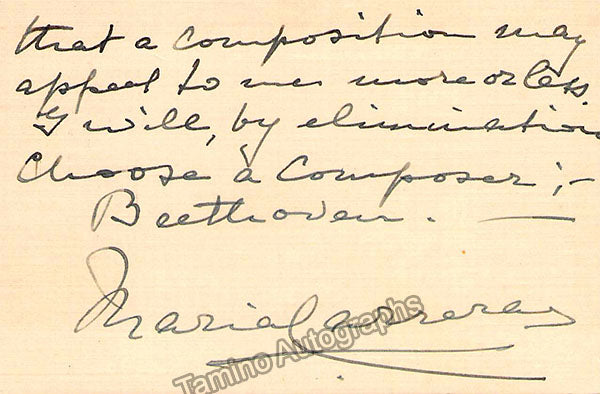 that a composition may
appeal to me more or less
I will, by elimination
choose a Composer ;-
Beethoven. —
Maria Carreras
Tamino Autographs